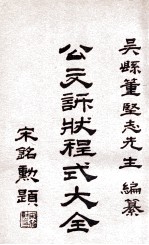 吴縣董堅志先生 編纂
公文訴狀程式大全
宋銘勳題